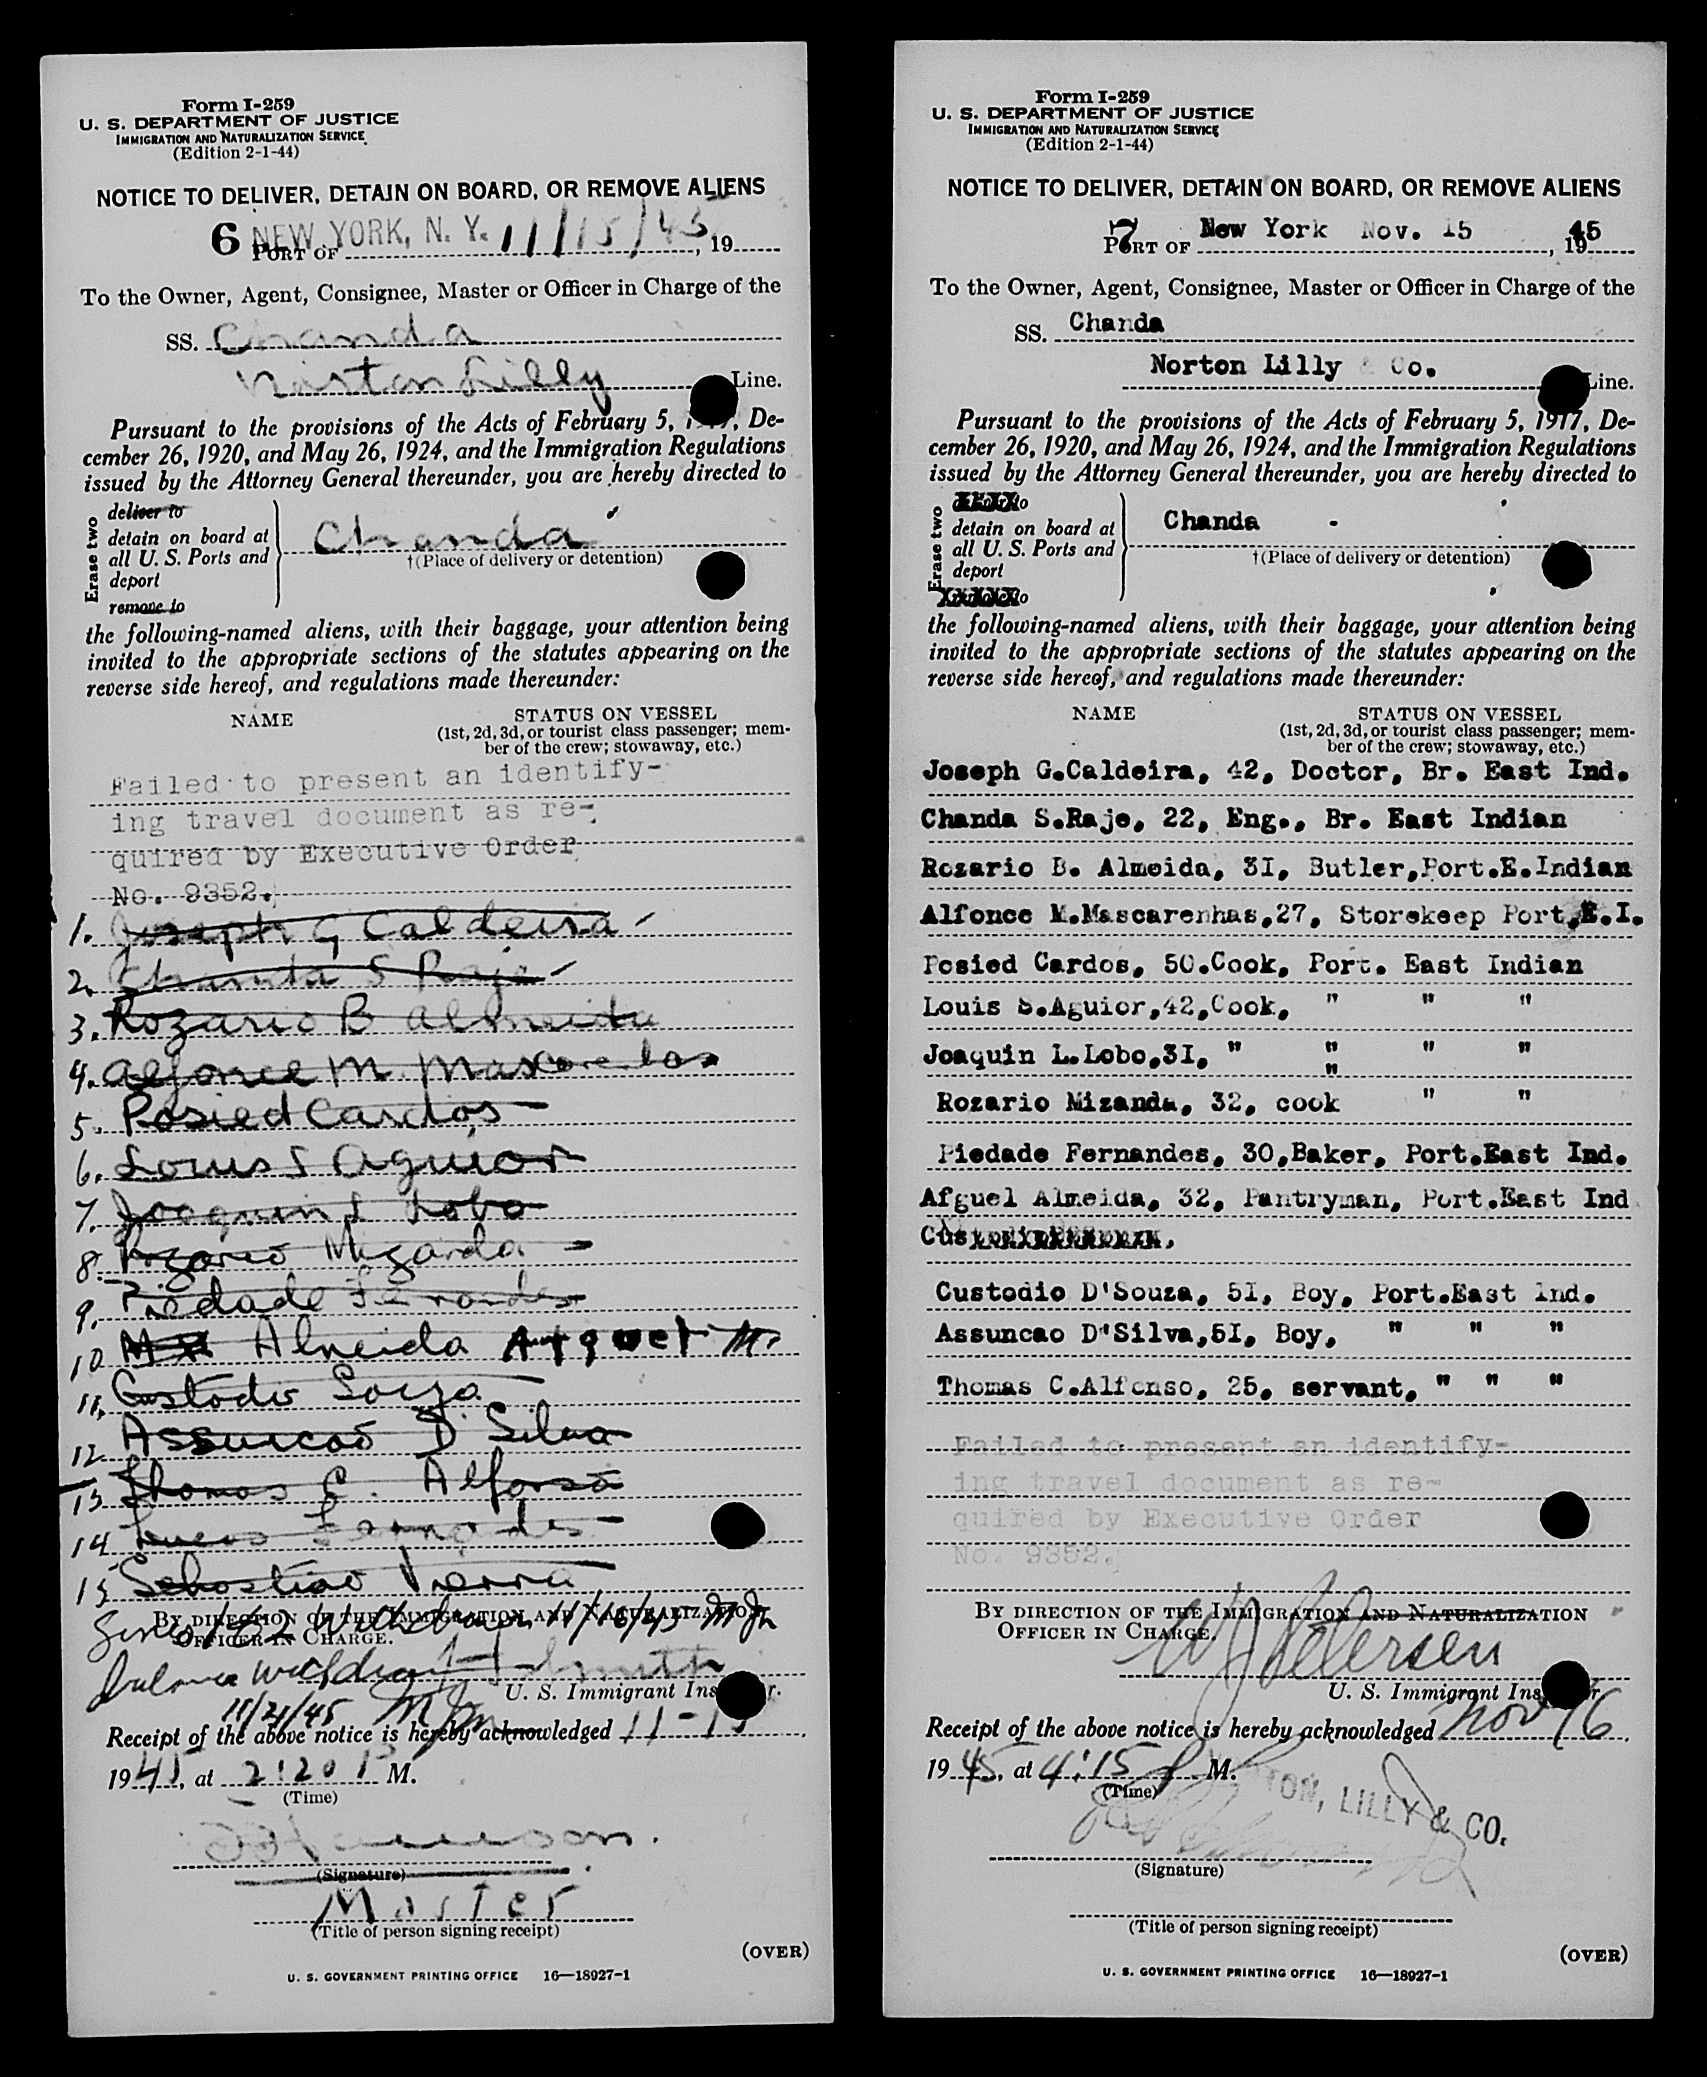 Form I-259
U. S. DEPARTMENT OF JUSTICE
IMMIGRATION AND NATURALIZATION SERVICE
(Edition 2-1-44)
NOTICE TO DELIVER, DETAIN ON BOARD, OR REMOVE ALIENS
6 NEW YORK, N. Y. 11/15/45
PORT OF , 19
To the Owner, Agent, Consignee, Master or Officer in Charge of the
SS. Chanda
Norton Lilly Line.
Pursuant to the provisions of the Acts of February 5, De-
cember 26, 1920, and May 26, 1924, and the Immigration Regulations
issued by the Attorney General thereunder, you are hereby directed to
Erase two
deliver to
detain on board at
all U. S. Ports and
deport
remove to
Chanda
†(Place of delivery or detention)
the following-named aliens, with their baggage, your attention being
invited to the appropriate sections of the statutes appearing on the
reverse side hereof, and regulations made thereunder:
NAME STATUS ON VESSEL
(1st, 2d, 3d, or tourist class passenger; mem-
ber of the crew; stowaway, etc.)
Failed to present an identify-
ing travel document as re-
quired by Executive Order
No. 9352.
1. Joseph G Caldeira
2. Chanda S Raje
3. Rozario B Almeida
4. Alfonce M. Mascarenhas
5. Posied Cardos
6. Louis S Aguior
7. Joaquin L Lobo
8. Rozario Mizanda
9. Piedade Fernandes
10 Almeida
11. Custodio Souza
12. Assuncao D Silva
13 Thomas C. Alfonso
14 Lucas Fernandes
15 Sebastiao Vierra
BY DIRECTION OF THE IMMIGRATION AND NATURALIZATION
OFFICER IN CHARGE.
11/16/45
11/21/45
U. S. Immigrant
Receipt of the above notice is hereby acknowledged 11-15
1945, at 2:20 P M.
(Time)
(Signature)
Master
(Title of person signing receipt)
(OVER)
U. S. GOVERNMENT PRINTING OFFICE 16—18927-1
Form I-259
U. S. DEPARTMENT OF JUSTICE
IMMIGRATION AND NATURALIZATION SERVICE
(Edition 2-1-44)
NOTICE TO DELIVER, DETAIN ON BOARD, OR REMOVE ALIENS
7
PORT OF New York Nov. 15, 1945
To the Owner, Agent, Consignee, Master or Officer in Charge of the
SS. Chanda
Norton Lilly & Co. Line.
Pursuant to the provisions of the Acts of February 5, 1917, De-
cember 26, 1920, and May 26, 1924, and the Immigration Regulations
issued by the Attorney General thereunder, you are hereby directed to
Erase two
detain on board at
all U. S. Ports and
deport
Chanda -
†(Place of delivery or detention)
the following-named aliens, with their baggage, your attention being
invited to the appropriate sections of the statutes appearing on the
reverse side hereof, and regulations made thereunder:
NAME STATUS ON VESSEL
(1st, 2d, 3d, or tourist class passenger; mem-
ber of the crew; stowaway, etc.)
Joseph G.Caldeira, 42, Doctor, Br. East Ind.
Chanda S.Raje, 22, Eng., Br. East Indian
Rozario B. Almeida, 3I, Butler,Port.E.Indian
Alfonce M.Mascarenhas,27, Storekeep Port.E.I.
Posied Cardos, 50.Cook, Port. East Indian
Louis S.Aguior,42,Cook, " " "
Joaquin L.Lobo,3I, " " " "
Rozario Mizanda, 32, cook " " "
Piedade Fernandes, 30,Baker, Port.East Ind.
Afguel Almeida, 32, Pantryman, Port.East Ind
Custodio D'Souza, 5I, Boy, Port.East Ind.
Assuncao D'Silva,5I, Boy, " " "
Thomas C.Alfonso, 25, servant, " " "
Failed to present an identify-
ing travel document as re-
quired by Executive Order
No. 9352.
BY DIRECTION OF THE IMMIGRATION AND NATURALIZATION
OFFICER IN CHARGE.
U. S. Immigrant
Receipt of the above notice is hereby acknowledged Nov 16,
1945, at 4:15 P. M.
(Time)
LILLY & CO.
(Signature)
(Title of person signing receipt)
(OVER)
U. S. GOVERNMENT PRINTING OFFICE 16—18927-1